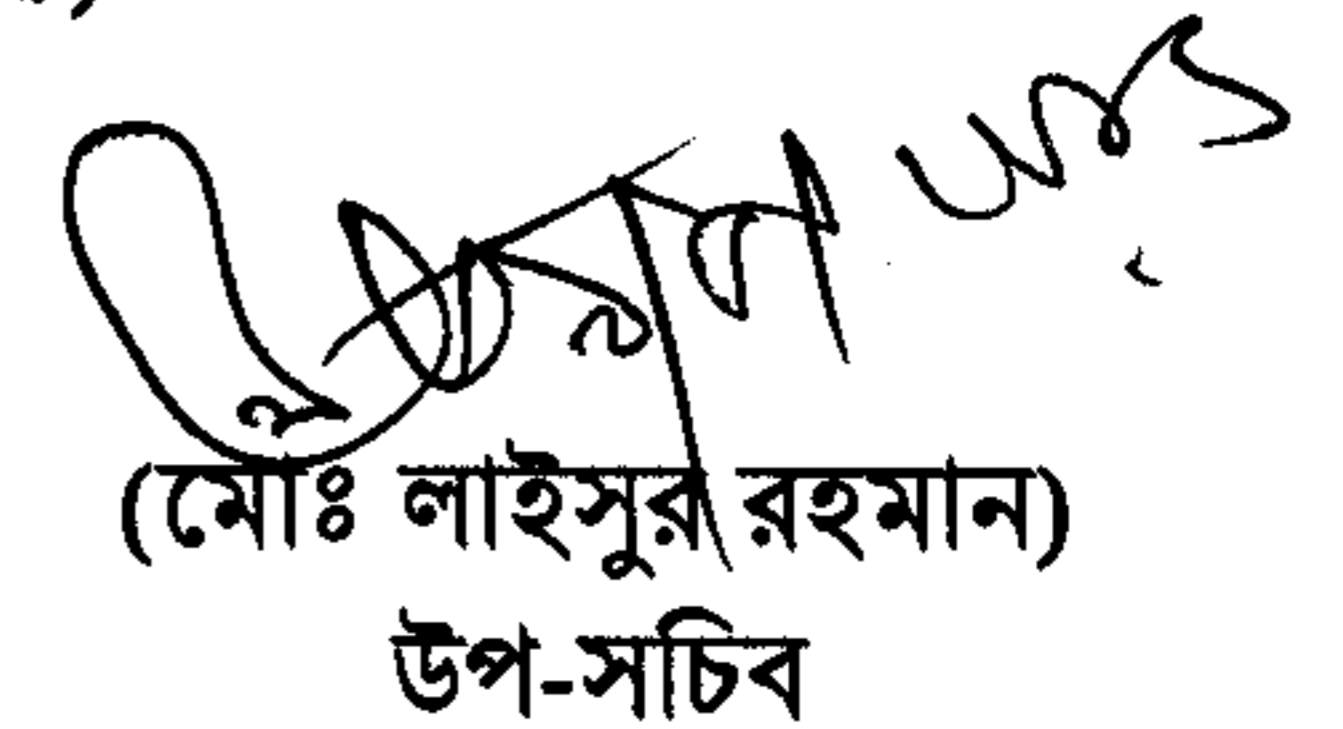 (মোঃ লাইসুর রহমান)
উপ-সচিব